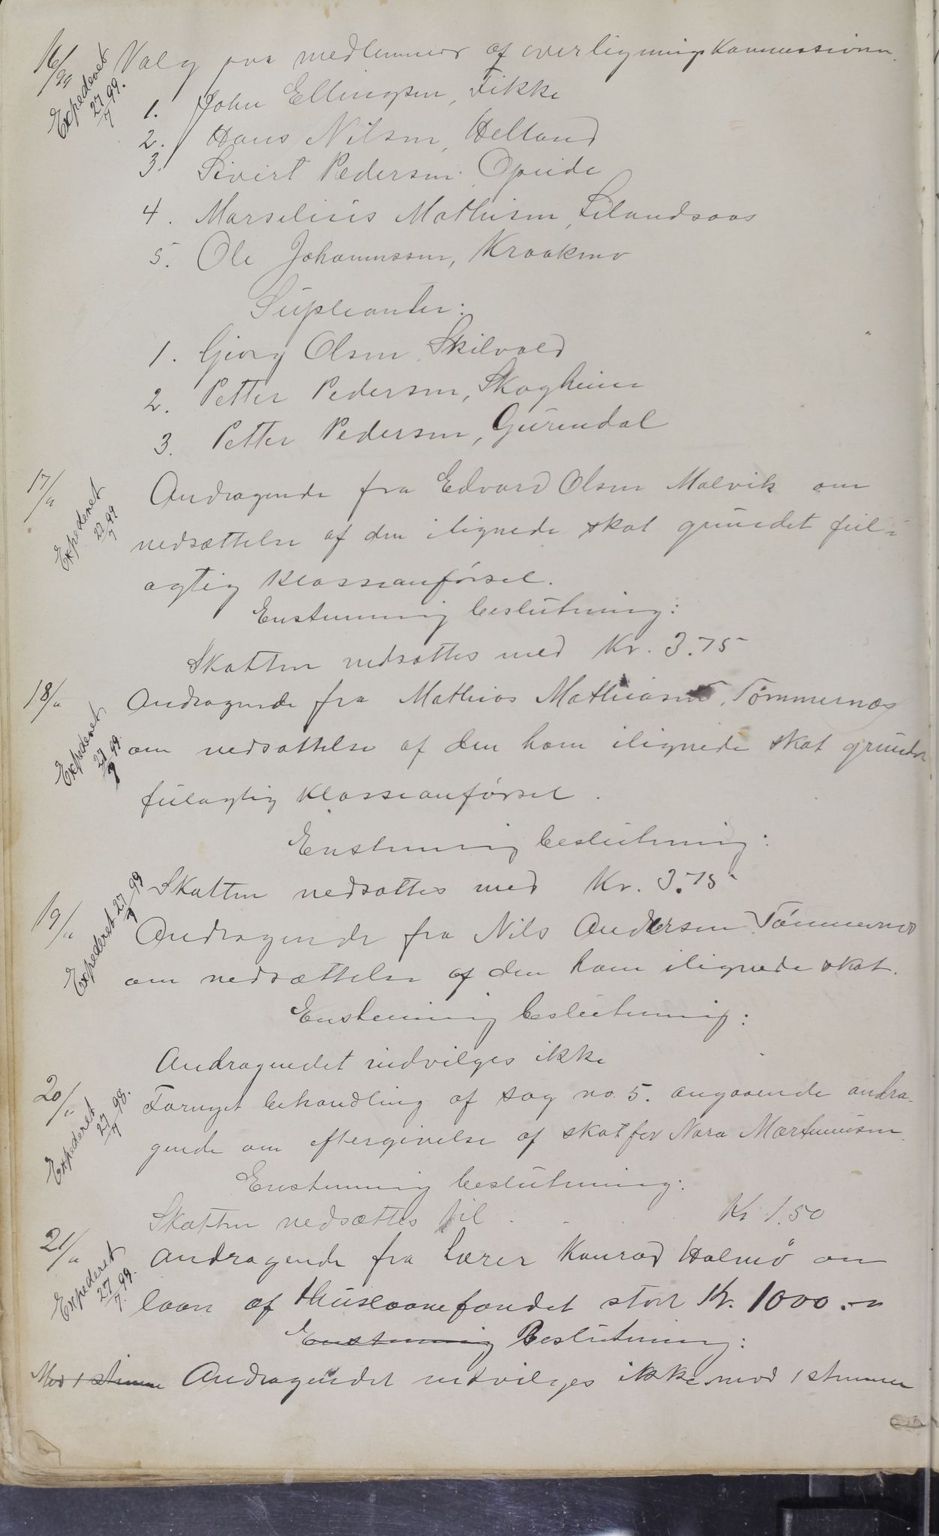 16/99 Valg paa medlemmer af overligningskommissionen.
Expederet 27/7 99.
1. John Ellingsen, Fikke
2. Hans Nilsen, Helland
3. Sivert Pedersen Opeide
4. Marselius Mathisen, Lilandsaas
5. Ole Johannessen, Kraakmo
Supleanter:
1. Georg Olsen Skilvald
2. Petter Pedersen, Skogheim
3. Petter Pedersen, Gurendal
17/" Andragende fra Edvard Olsen Malvik om
Expederet 27/7 99
nedsættelse af den ilignede skat grundet feil-
agtig klasseanførsel.
Enstemmig beslutning:
Skatten nedsattes med Kr. 3.75
18/" Andragende fra Mathias Mathiasen, Tømmernæs
Expederet 27/7 99.
om nedsættelse af den ham ilignede skat grundet
feilagtig klasseanførsel.
Enstemmig beslutning:
Skatten nedsattes med Kr. 3.75
19/" Andragende fra Nils Andersen Tømmernes
Expederet 27/7 99
om nedsættelse af den ham ilignede skat.
Enstemmig beslutning:
Andragendet indvilges ikke
20/" Fornyet behandling af sag no. 5. angaaende andra-
Expederet 27/7 98.
gende om eftergivelse af skat for Nora Martinusen.
Enstemmig beslutning:
Skatten nedsættes til Kr 1.50
21/" Andragende fra Lærer Konrad Holmø om
Expederet 27/7. 99.
laan af Huslaanefondet stort Kr. 1000.-
Enstemmig Beslutning:
Mod 1 stemme Andragendet indvilges ikke mod 1 stemme